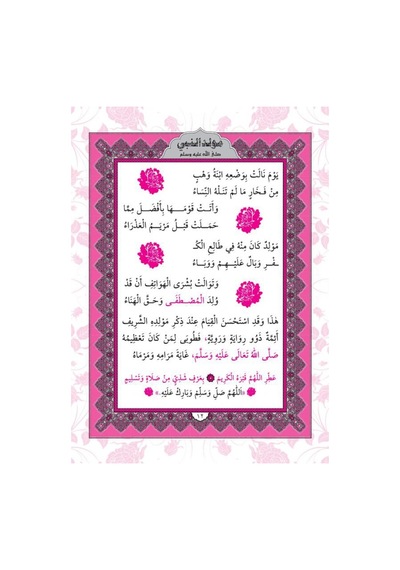 مولد النبي
صلى الله عليه وسلم
يَوْمَ نَالَتْ بِوَضْعِهِ ابْنَةُ وَهْبٍ
مِنْ فَخَارٍ مَا لَمْ تَنَلْهُ النِّسَاءُ
وَأَتَتْ قَوْمَهَا بِأَفْضَلَ مِمَّا
حَمَلَتْ قَبْلُ مَرْيَمُ الْعَذْرَاءُ
مَوْلِدٌ كَانَ مِنْهُ فِي طَالِعِ الْكُـ
ـفْرِ وَبَالٌ عَلَيْهِمْ وَوَبَاءُ
وَتَوَالَتْ بُشْرَى الْهَوَاتِفِ أَنْ قَدْ
وُلِدَ الْمُصْطَفَى وَحَقَّ الْهَنَاءُ
هَذَا وَقَدِ اسْتَحْسَنَ الْقِيَامَ عِنْدَ ذِكْرِ مَوْلِدِهِ الشَّرِيفِ
أَئِمَّةٌ ذَوُو رِوَايَةٍ وَرَوِيَّةٍ، فَطُوبَى لِمَنْ كَانَ تَعْظِيمُهُ
صَلَّى اللهُ تَعَالَى عَلَيْهِ وَسَلَّمَ، غَايَةَ مَرَامِهِ وَمَرْمَاهُ
عَطِّرِ اللَّهُمَّ قَبْرَهُ الْكَرِيمَ ۞ بِعَرْفٍ شَذِيٍّ مِنْ صَلَاةٍ وَتَسْلِيمٍ
«اَللَّهُمَّ صَلِّ وَسَلِّمْ وَبَارِكْ عَلَيْهِ.»
١٢